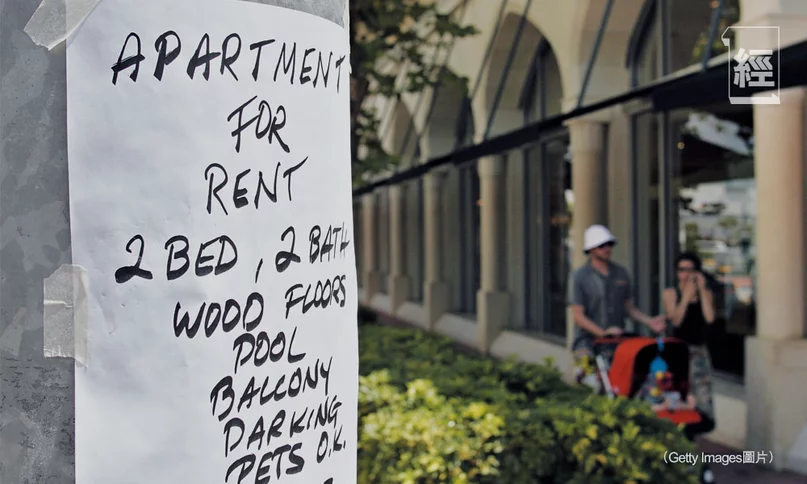 APARTMENT
FOR
RENT
2 BED, 2 BATH
WOOD FLOORS
POOL
BALCONY
PARKING
PETS O.K.
經
(Getty Images圖片)